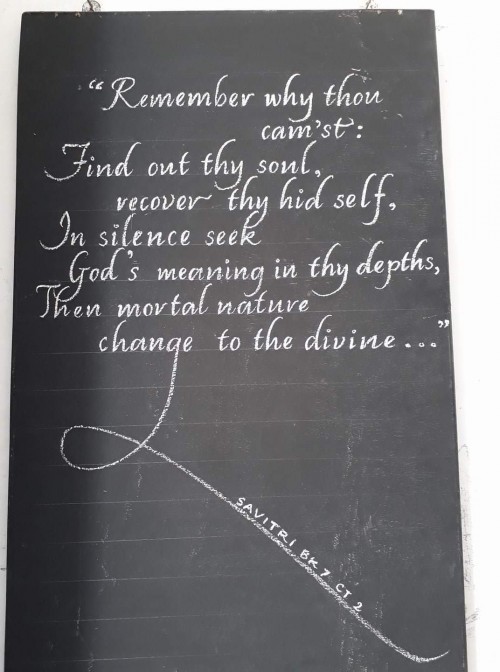 “Remember why thou
cam'st:
Find out thy soul,
recover thy hid self,
In silence seek
God's meaning in thy depths,
Then mortal nature
change to the divine ...”
SAVITRI BK 7 CT 2